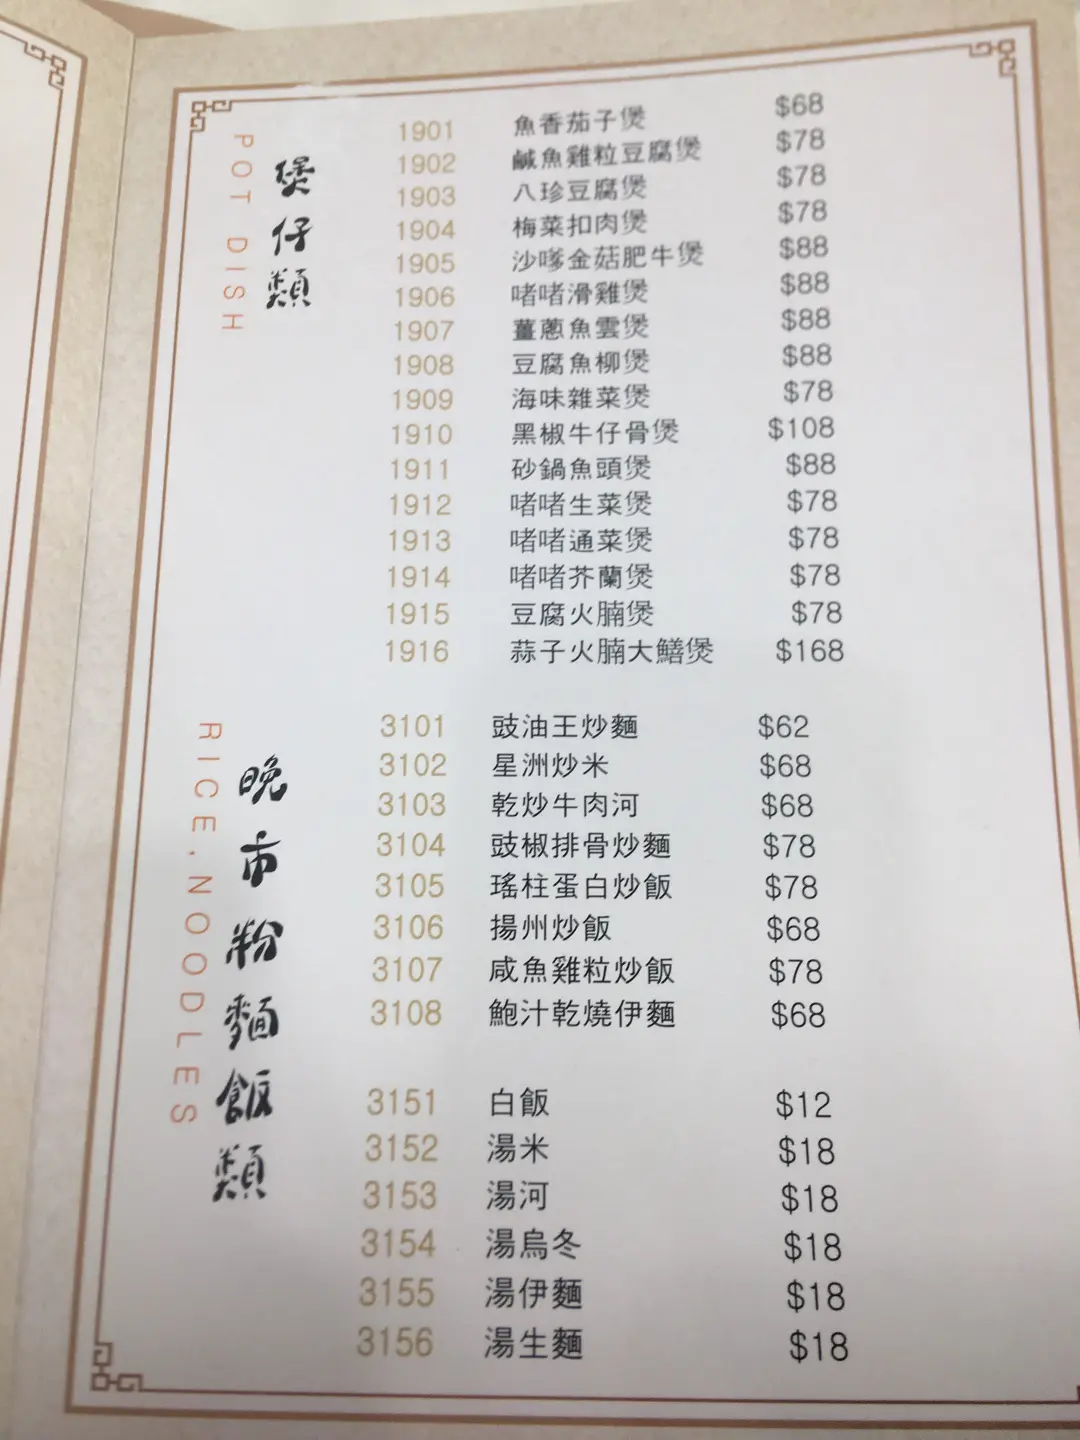 POT DISH
煲仔類
1901 魚香茄子煲 $68
1902 鹹魚雞粒豆腐煲 $78
1903 八珍豆腐煲 $78
1904 梅菜扣肉煲 $78
1905 沙嗲金菇肥牛煲 $88
1906 啫啫滑雞煲 $88
1907 薑蔥魚雲煲 $88
1908 豆腐魚柳煲 $88
1909 海味雜菜煲 $78
1910 黑椒牛仔骨煲 $108
1911 砂鍋魚頭煲 $88
1912 啫啫生菜煲 $78
1913 啫啫通菜煲 $78
1914 啫啫芥蘭煲 $78
1915 豆腐火腩煲 $78
1916 蒜子火腩大鱔煲 $168
RICE.NOODLES
晚市粉麵飯類
3101 豉油王炒麵 $62
3102 星洲炒米 $68
3103 乾炒牛肉河 $68
3104 豉椒排骨炒麵 $78
3105 瑤柱蛋白炒飯 $78
3106 揚州炒飯 $68
3107 咸魚雞粒炒飯 $78
3108 鮑汁乾燒伊麵 $68
3151 白飯 $12
3152 湯米 $18
3153 湯河 $18
3154 湯烏冬 $18
3155 湯伊麵 $18
3156 湯生麵 $18